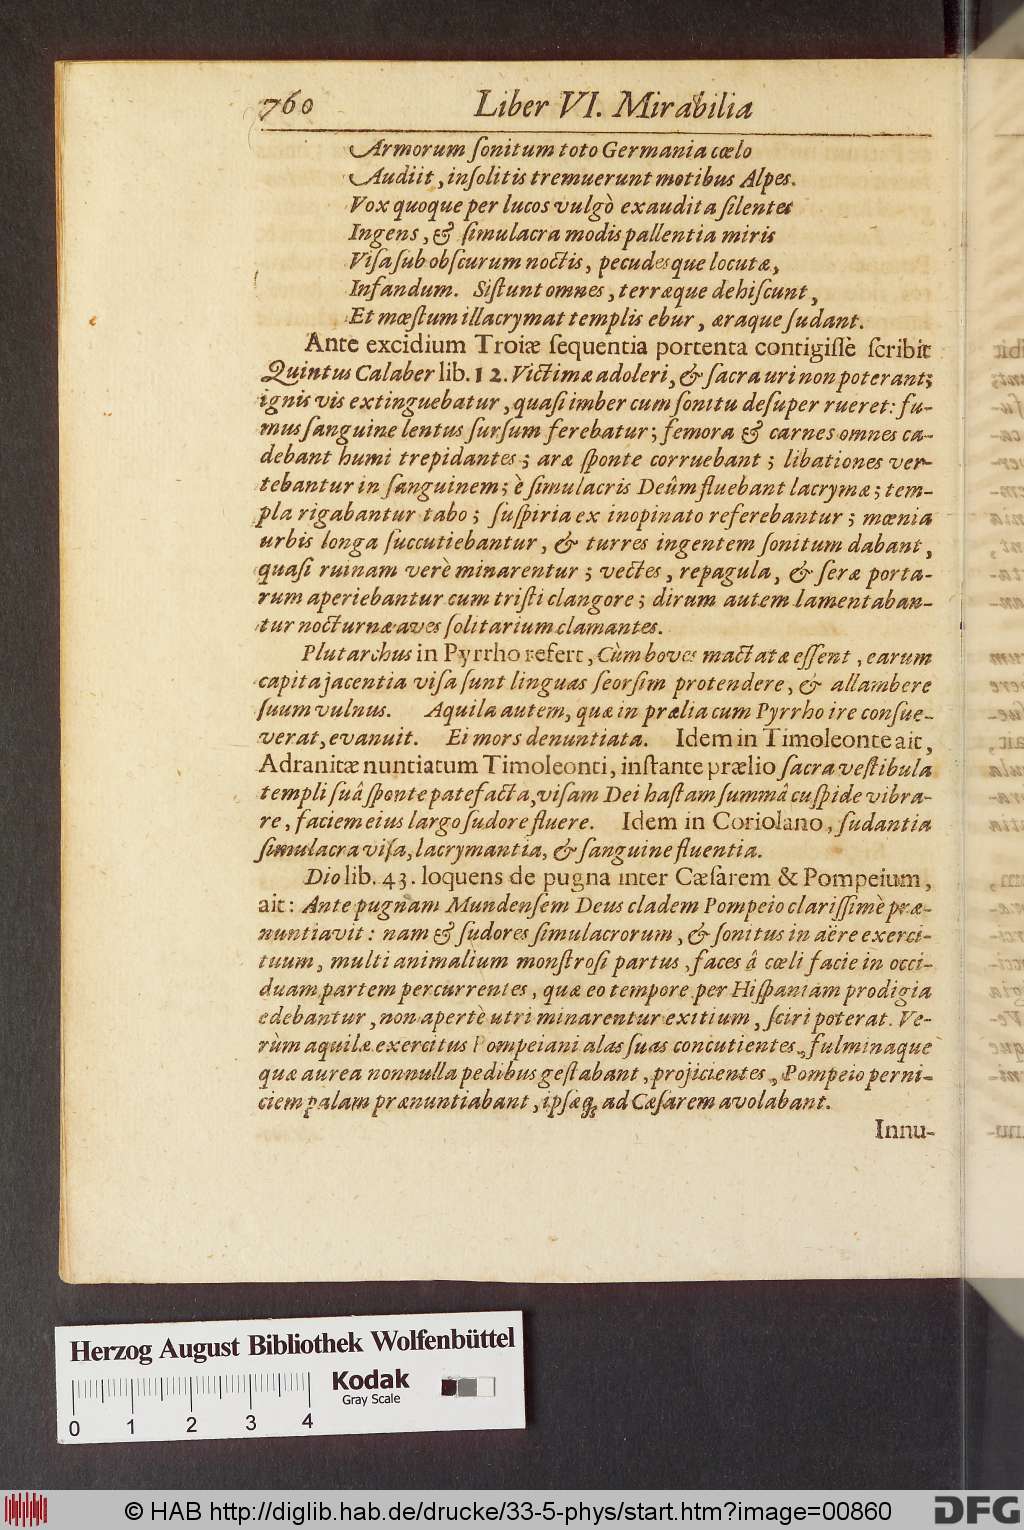 760 Liber VI. Mirabilia
Armorum ſonitum toto Germania cœlo
Audiit, inſolitis tremuerunt motibus Alpes.
Vox quoque per lucos vulgò exaudita ſilentes
Ingens, & ſimulacra modis pallentia miris
Viſa ſub obſcurum noctis, pecudesque locutæ,
Infandum. Siſtunt omnes, terræque dehiſcunt,
Et mœſtum illacrymat templis ebur, æraque ſudant.
Ante excidium Troiæ ſequentia portenta contigiſſè ſcribit
Quintus Calaber lib. 12. Victimæ adoleri, & ſacra uri non poterant;
ignis vis extinguebatur, quaſi imber cum ſonitu deſuper rueret: fu-
mus ſanguine lentus ſurſum ferebatur; femora & carnes omnes ca-
debant humi trepidantes; aræ ſponte corruebant; libationes ver-
tebantur in ſanguinem; è ſimulacris Deûm fluebant lacrymæ; tem-
pla rigabantur tabo; ſuſpiria ex inopinato referebantur; mœnia
urbis longa ſuccutiebantur, & turres ingentem ſonitum dabant,
quaſi ruinam verè minarentur; vectes, repagula, & ſeræ porta-
rum aperiebantur cum triſti clangore; dirum autem lamentaban-
tur nocturnæ aves ſolitarium clamantes.
Plutarchus in Pyrrho refert, Cùm boves mactatæ eſſent, earum
capita jacentia viſa ſunt linguas ſeorſim protendere, & allambere
ſuum vulnus. Aquila autem, quæ in prælia cum Pyrrho ire conſue-
verat, evanuit. Ei mors denuntiata. Idem in Timoleonte ait,
Adranitæ nuntiatum Timoleonti, inſtante prælio ſacra veſtibula
templi ſuâ ſponte patefacta, viſam Dei haſtam ſummâ cuſpide vibra-
re, faciem eius largo ſudore fluere. Idem in Coriolano, ſudantia
ſimulacra viſa, lacrymantia, & ſanguine fluentia.
Dio lib. 43. loquens de pugna inter Cæſarem & Pompeium,
ait: Ante pugnam Mundenſem Deus cladem Pompeio clariſſimè præ-
nuntiavit: nam & ſudores ſimulacrorum, & ſonitus in aëre exerci-
tuum, multi animalium monſtroſi partus, faces â cœli facie in occi-
duam partem percurrentes, quæ eo tempore per Hiſpaniam prodigia
edebantur, non apertè utri minarentur exitium, ſciri poterat. Ve-
rùm aquilæ exercitus Pompeiani alas ſuas concutientes, fulminaque
quæ aurea nonnulla pedibus geſtabant, projicientes, Pompeio perni-
ciem palam prænuntiabant, ipſæq; ad Cæſarem avolabant.
Innu-
Herzog August Bibliothek Wolfenbüttel
Kodak
Gray Scale
0 1 2 3 4
© HAB http://diglib.hab.de/drucke/33-5-phys/start.htm?image=00860
DFG